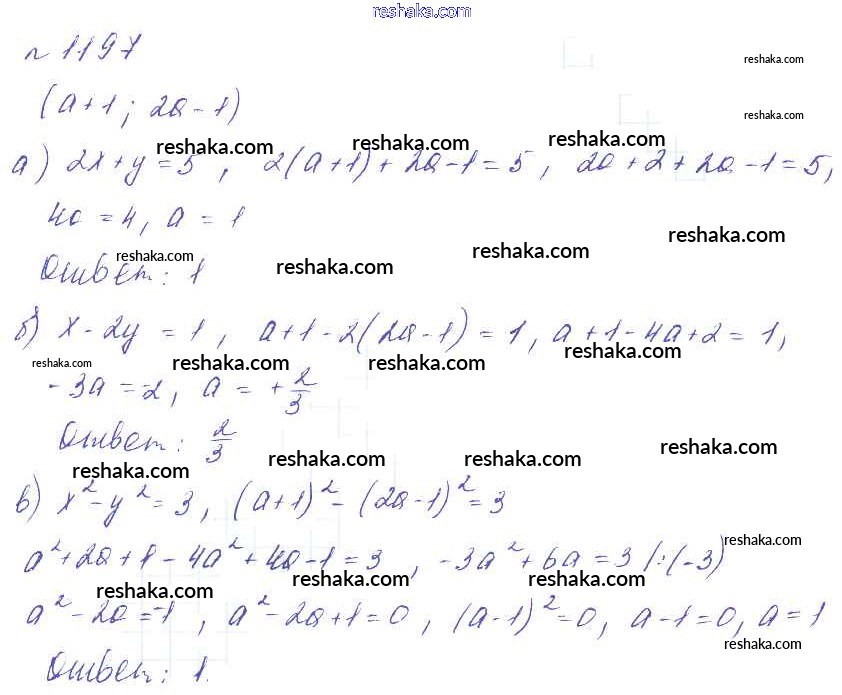 reshaka.com
n 1197
reshaka.com
(a+1; 2a-1)
reshaka.com
reshaka.com reshaka.com reshaka.com
а) 2x+y=5, 2(a+1)+2a-1=5, 2a+2+2a-1=5,
4a=4, a=1
reshaka.com reshaka.com reshaka.com reshaka.com
Ответ: 1
б) x-2y=1, a+1-2(2a-1)=1, a+1-4a+2=1,
reshaka.com reshaka.com reshaka.com reshaka.com
-3a=-2, a=+2/3
Ответ: 2/3
reshaka.com reshaka.com reshaka.com reshaka.com
в) x²-y²=3, (a+1)²-(2a-1)²=3
reshaka.com
a²+2a+1-4a²+4a-1=3, -3a²+6a=3 /:(-3)
reshaka.com reshaka.com reshaka.com reshaka.com
a²-2a=-1, a²-2a+1=0, (a-1)²=0, a-1=0, a=1
reshaka.com
Ответ: 1.